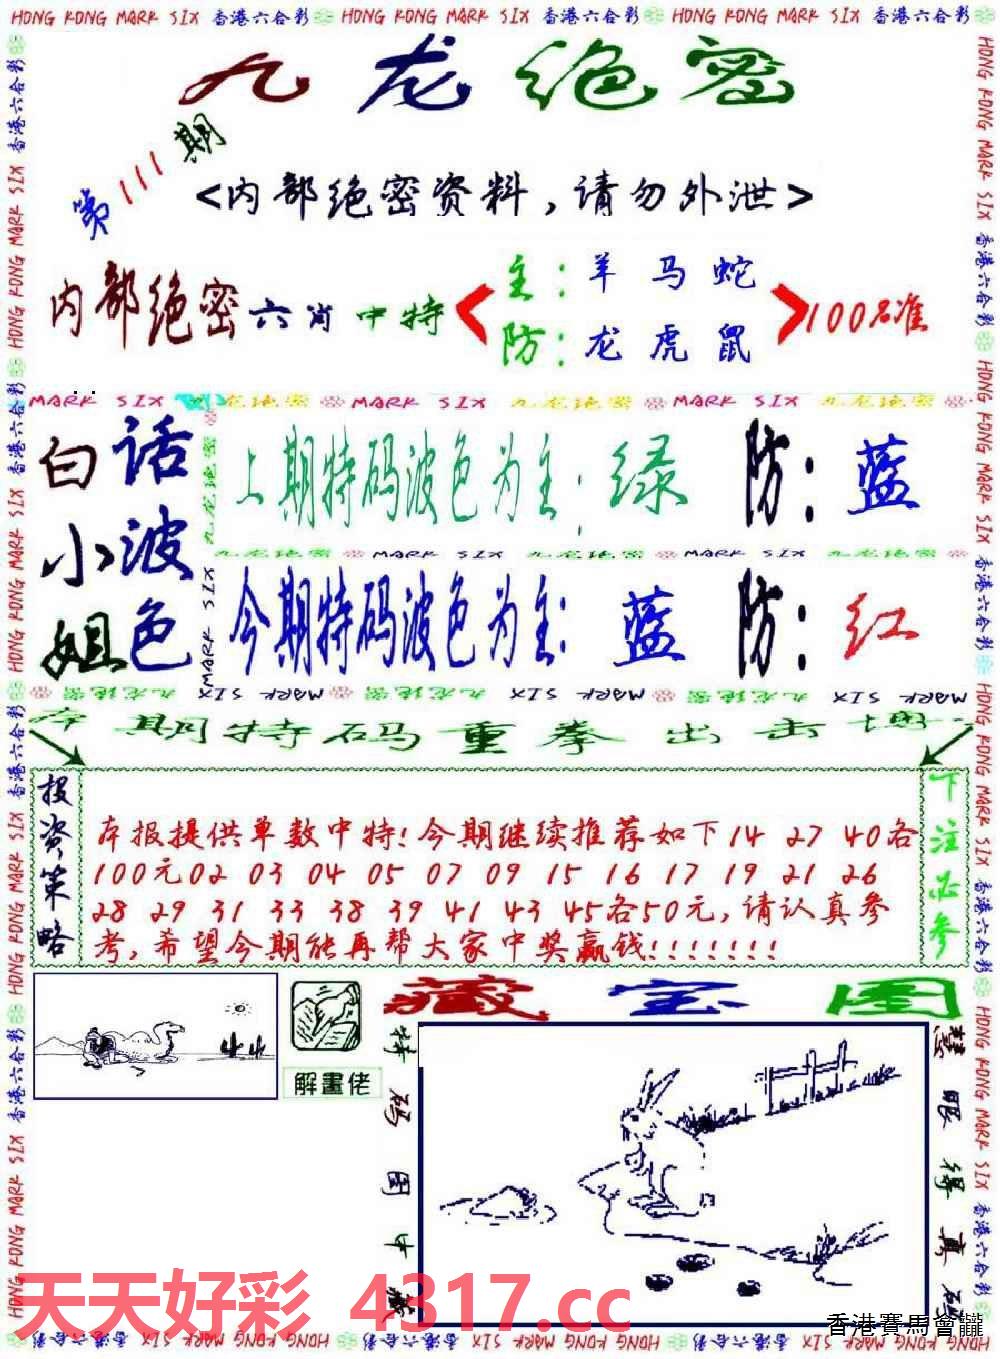 HONG KONG MARK SIX 香港六合彩 HONG KONG MARK SIX 香港六合彩 HONG KONG MARK SIX 香港六合彩
九龙绝密
第111期
<内部绝密资料,请勿外泄>
内部绝密六肖中特
主:羊马蛇
防:龙虎鼠
100%准
MARK SIX 九龙绝密 MARK SIX 九龙绝密 MARK SIX 九龙绝密
白小姐
话波色
上期特码波色为主:绿 防:蓝
九龙绝密 MARK SIX 九龙绝密 MARK SIX 九龙绝密
今期特码波色为主:蓝 防:红
本期特码重拳出击
投资策略
本报提供单数中特!今期继续推荐如下14 27 40各
100元02 03 04 05 07 09 15 16 17 19 21 26
28 29 31 33 38 39 41 43 45各50元,请认真参
考,希望今期能再帮大家中奖赢钱!!!!!!!
下注必参
解畫佬
藏宝图
特码图中藏
慧眼得真码
天天好彩 4317.cc
香港賽馬會